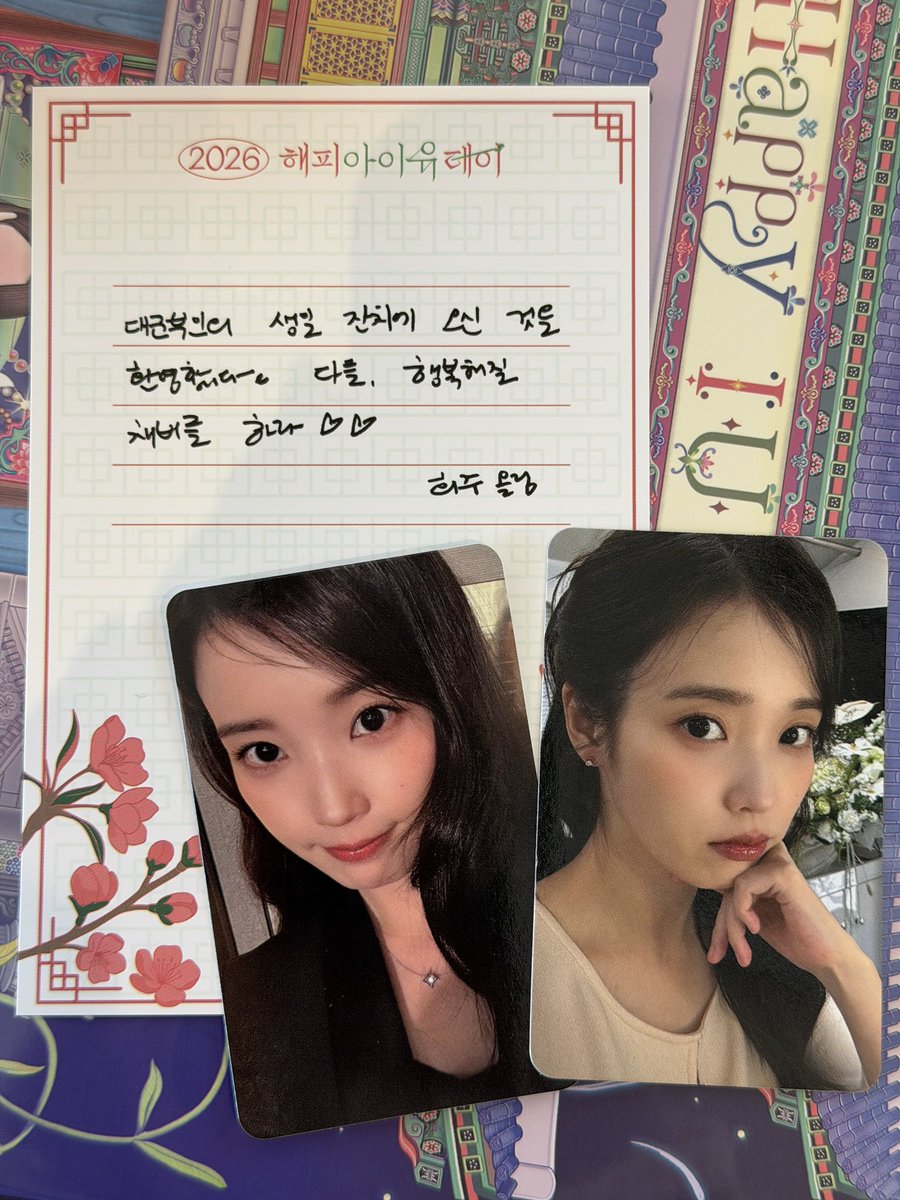 2026 해피아이유데이
대군부인의 생일 잔치에 오신 것을
환영합니다. 다들, 행복해질
채비를 하라 ♡♡
희주 올림
Happy IU